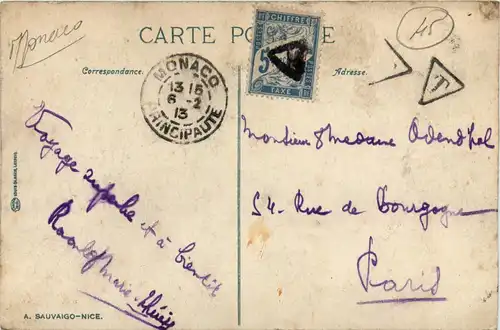 Monaco
CARTE PO
45
CHIFFRE
5
TAXE
T
Correspondance.
Adresse.
MONACO
13 15
6 - 2
13
PRINCIPAUTÉ
Voyage superbe et à bientôt
Monsieur & Madame Odendhal
54 - Rue de Bourgogne
Paris
A. SAUVAIGO-NICE.